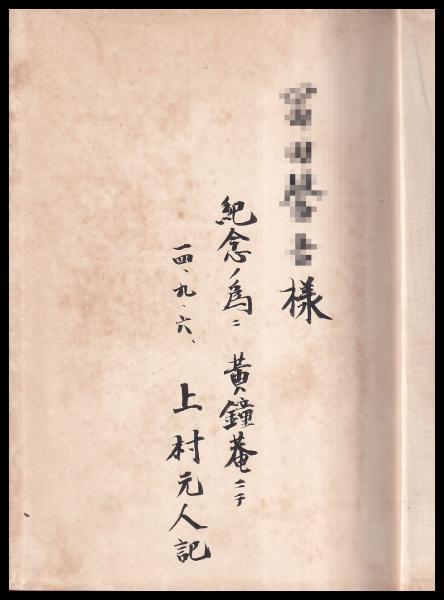 様
紀念ノ為ニ 黄鐘菴ニテ
一四、九、六、
上村元人記